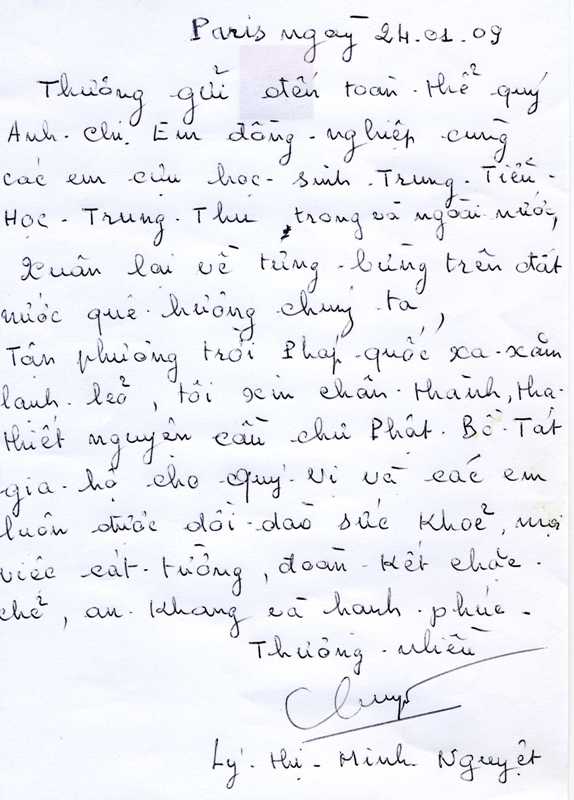 Paris ngày 24.01.09
Thương gửi đến toàn thể quý
Anh. Chị. Em đồng nghiệp cùng
các em cựu học sinh Trung. Tiểu.
Học. Trung. Thu, trong và ngoài nước,
Xuân lại về tưng bừng trên đất
nước quê hương chúng ta,
Tận phương trời Pháp quốc xa xăm
lạnh lẽo, tôi xin chân thành, tha
thiết nguyện cầu chư Phật. Bồ Tát
gia hộ cho Quý vị và các em
luôn được dồi dào sức khoẻ, mọi
việc cát tường, đoàn kết chặt
chẽ, an khang và hạnh phúc.
Thương nhiều
Lý. Thị. Minh Nguyệt